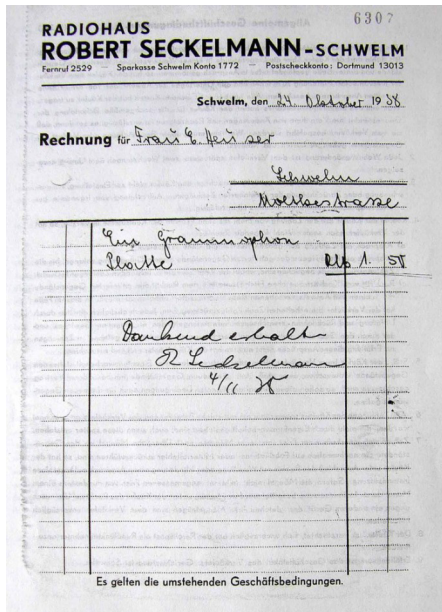 6307
RADIOHAUS
ROBERT SECKELMANN-SCHWELM
Fernruf 2529 — Sparkasse Schwelm Konto 1772 — Postscheckkonto: Dortmund 13013
Schwelm, den 24. Oktober 1938
Rechnung für Frau E. Heuser
Schwelm
Moltkestrasse
Ein Grammophon
Platte RM 1. 50
Dankend erhalt
R Seckelmann
4/11 38
Es gelten die umstehenden Geschäftsbedingungen.